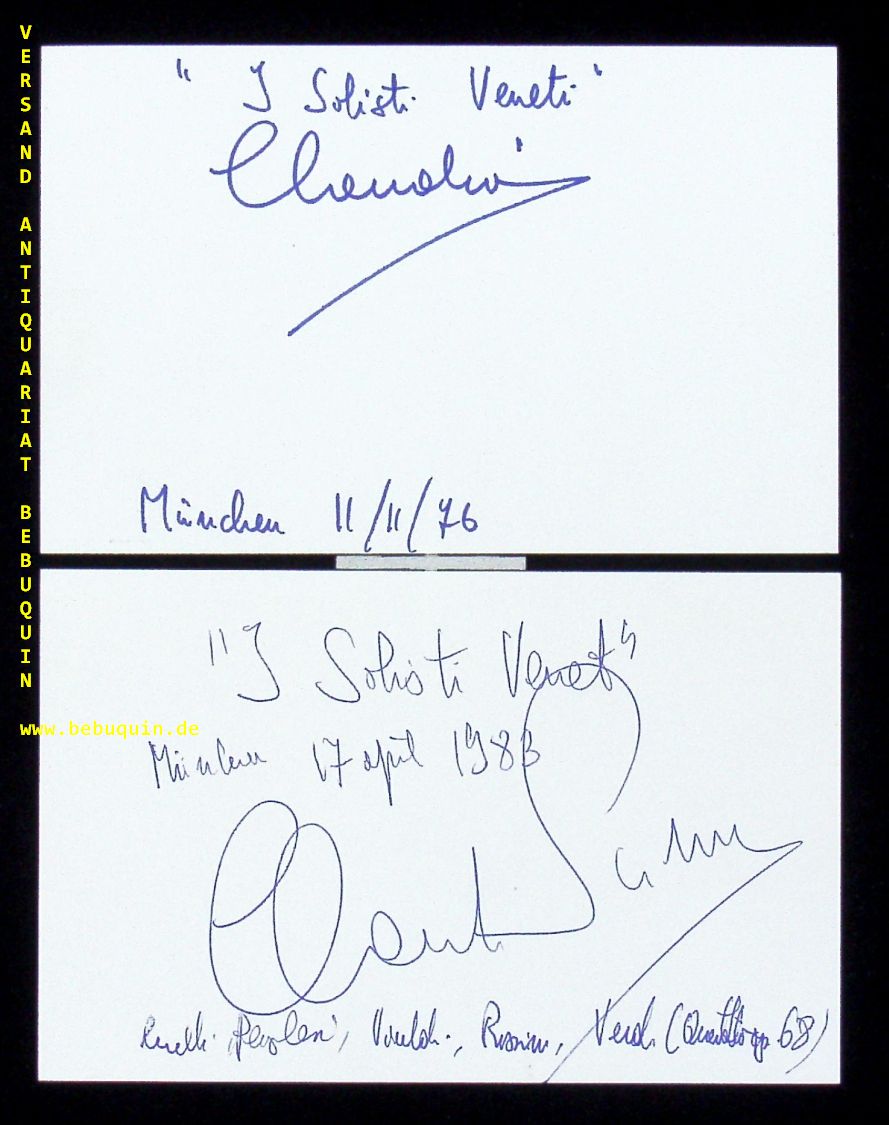 VERSAND ANTIQUARIAT BEBUQUIN
www.bebuquin.de
" I Solisti Veneti "
München 11/11/76
"I Solisti Veneti"
München 17 april 1983
Claudio Scimone
Pergolesi, Vivaldi, Rossini, Verdi (Quartetto op 68)